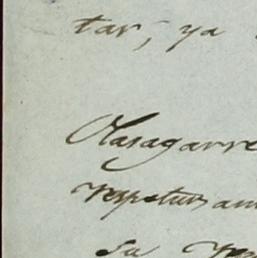 tar, ya
Olasagarre
respetuosam
su